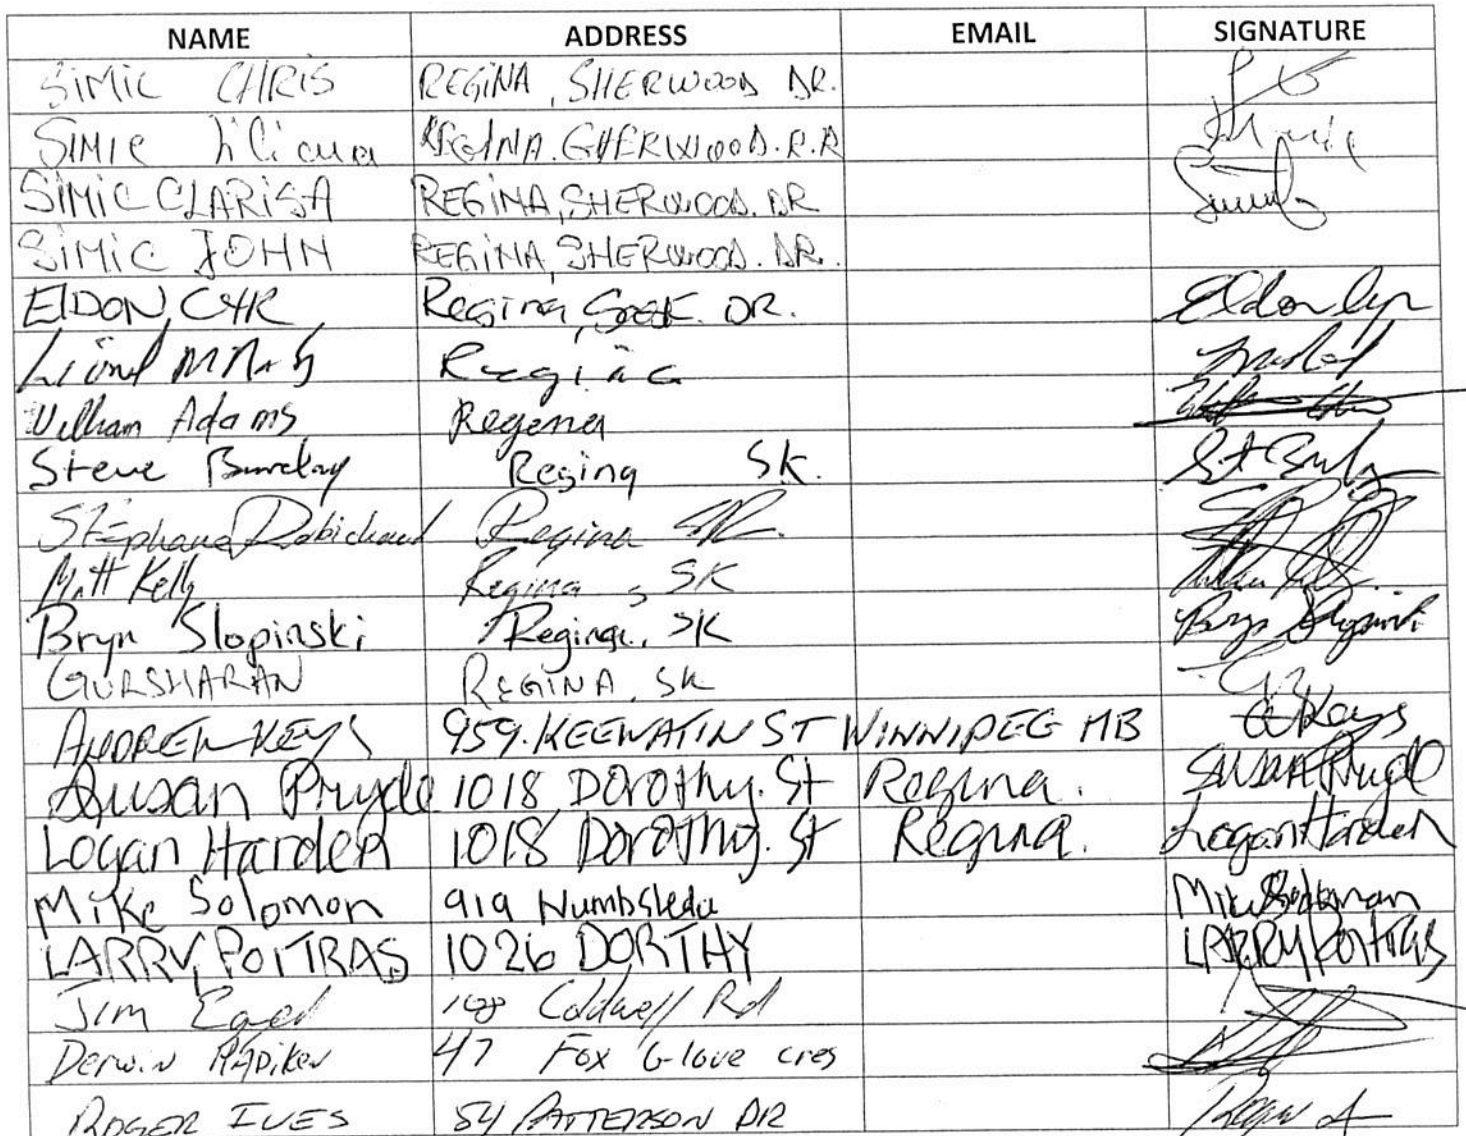 NAME ADDRESS EMAIL SIGNATURE
SIMIC CHRIS REGINA, SHERWOOD DR.
SIMIC Liliana REGINA. SHERWOOD.
SIMIC CLARISA REGINA, SHERWOOD. DR
SIMIC JOHN REGINA, SHERWOOD. DR.
ELDON CYR Regina, DR. Eldon Cyr
Lionel Regina
William Adams Regena
Steve Barclay Regina SK.
Stéphane Robichaud Regina SK.
Matt Kelly Regina, SK
Bryn Slopinski Regina, SK Bryn Slopinski
GURSHARAN REGINA, SK
ANDREW KEYS 959. KEEWATIN ST WINNIPEG MB A Keys
Susan Pryde 1018 Dorothy. St Regina. Susan Pryde
Logan Harden 1018 Dorothy. St Regina. Logan Harden
Mike Solomon 919 Mike Solomon
LARRY POITRAS 1026 DORTHY LARRY POITRAS
Jim Coldwell Rd
Derwin 47 Fox Glove cres
ROGER IVES 84 PATTERSON DR